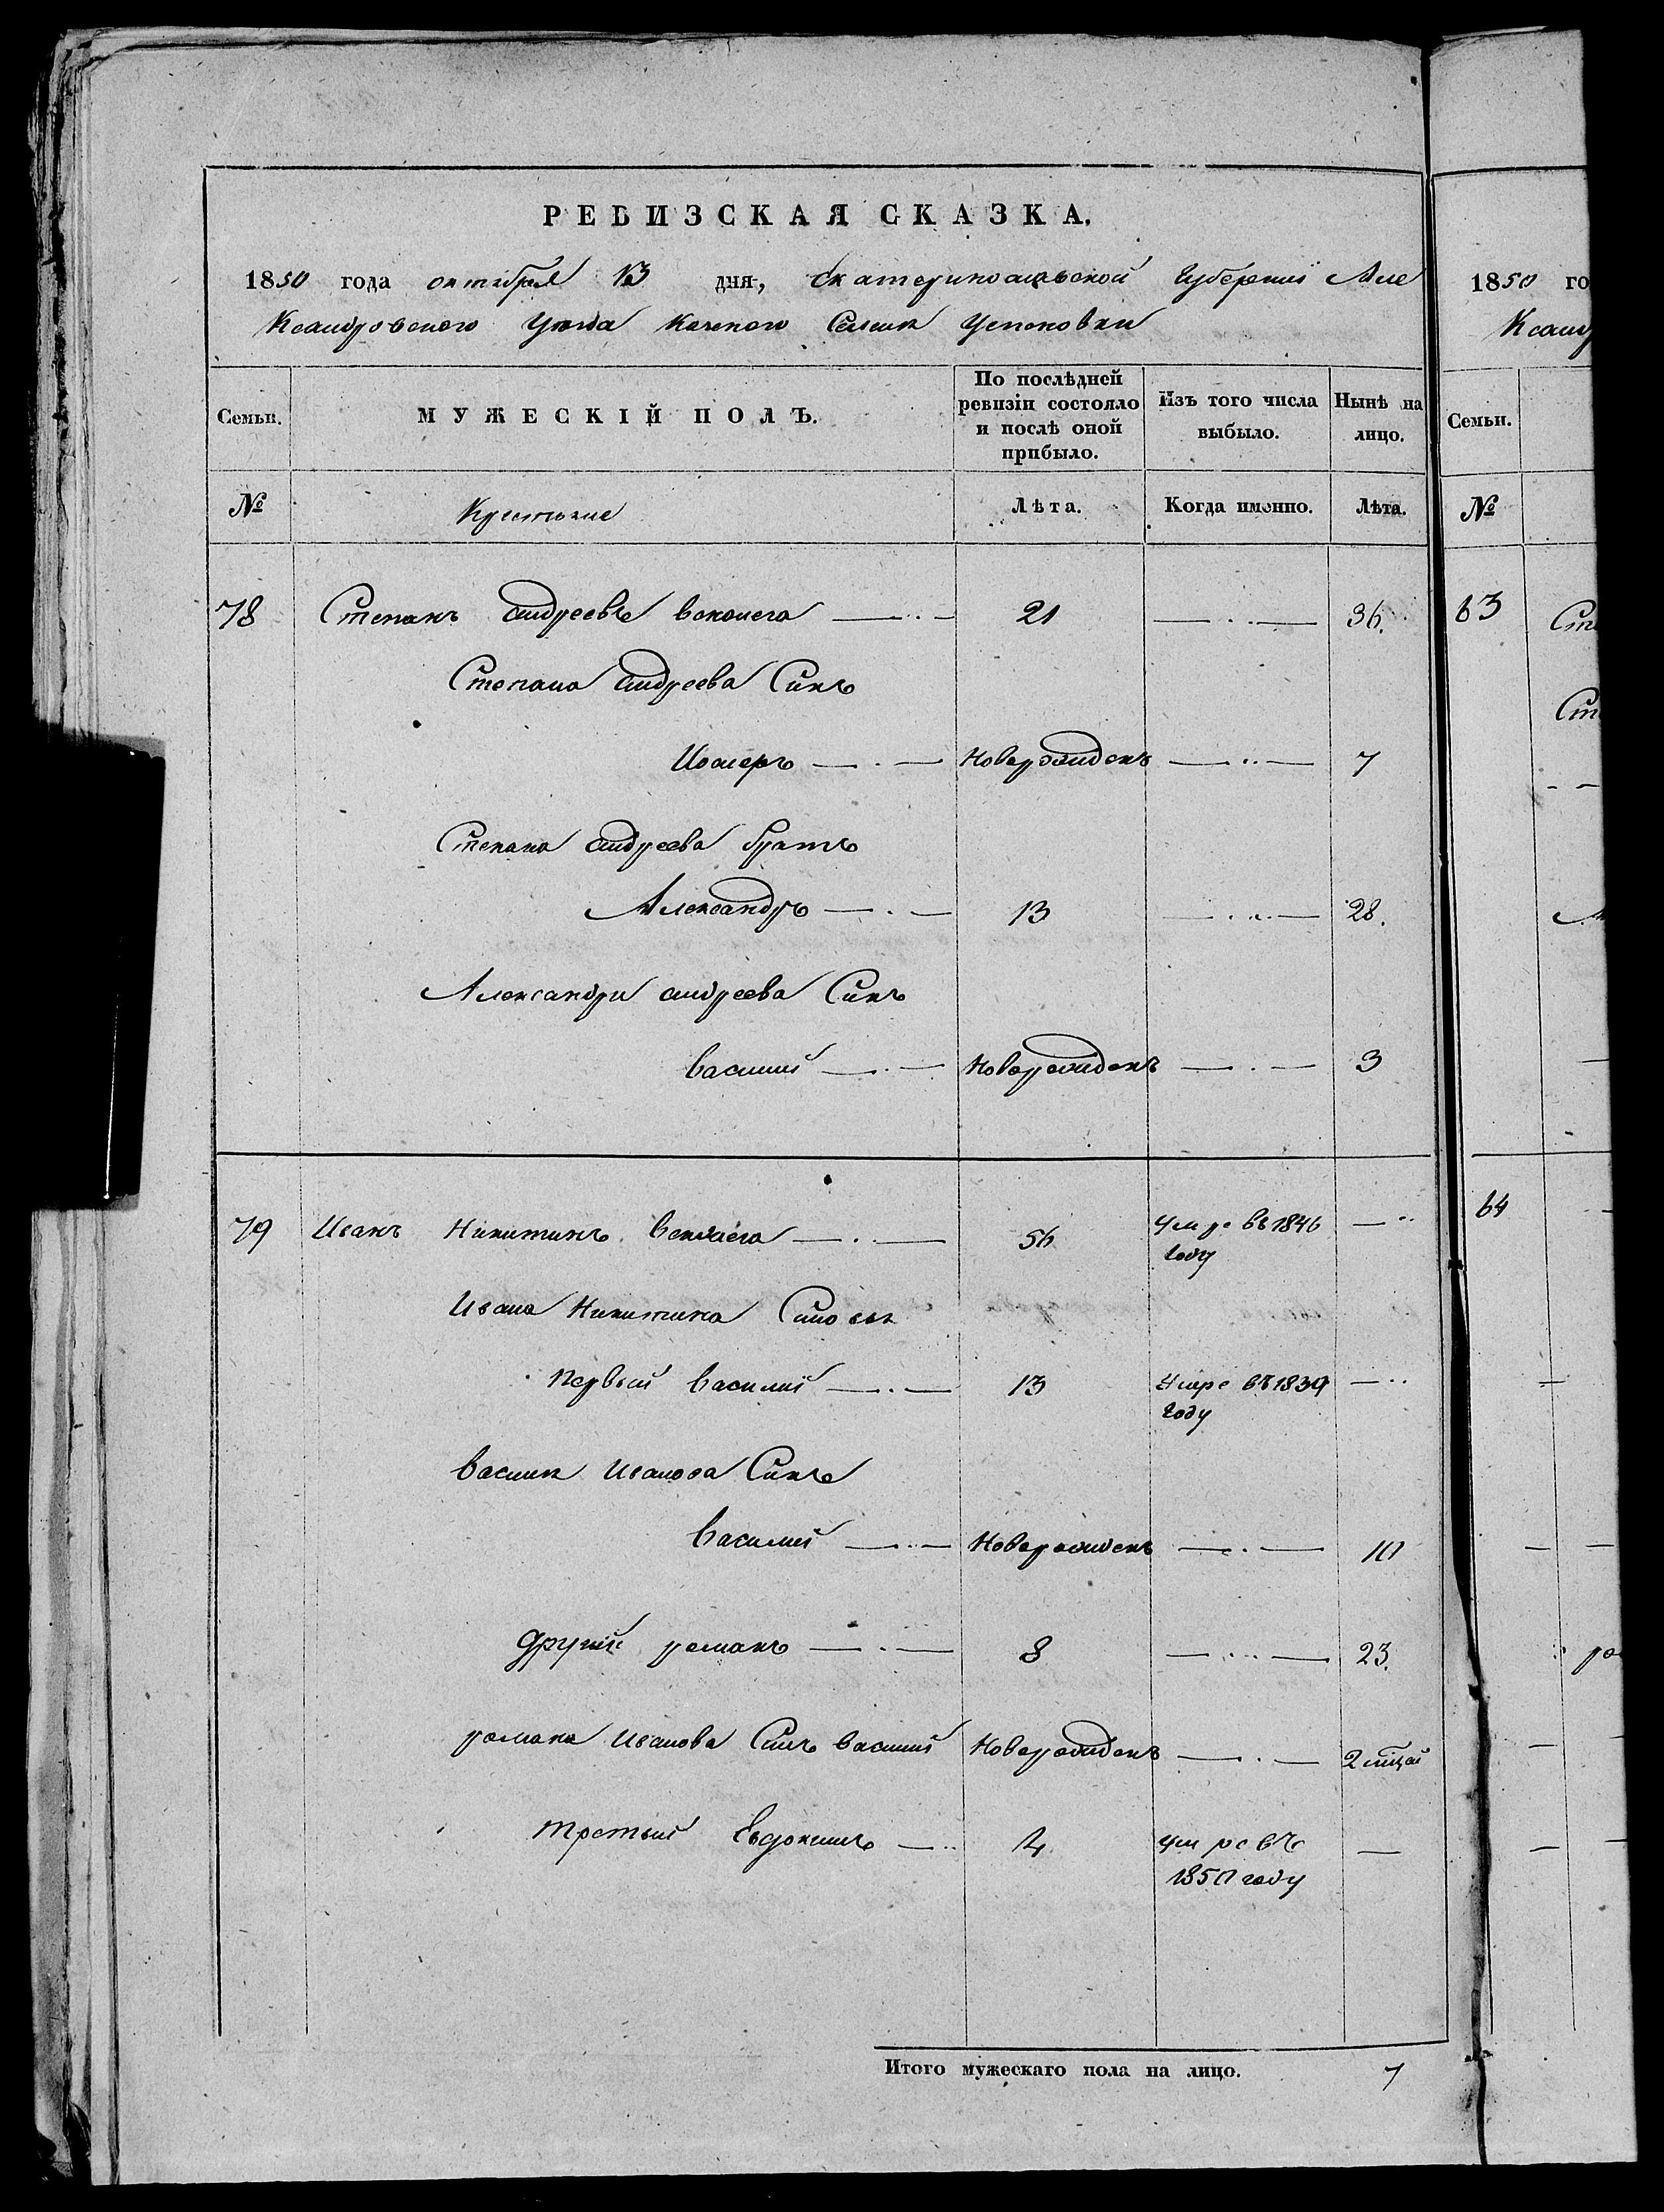 РЕВИЗСКАЯ СКАЗКА.
1850 года октября 13 дня, Екатеринославской Губернии Але
Ксандровского Уезда Селения Успеновки
Семьи.
МУЖЕСКІЙ ПОЛЪ.
По послѣдней ревизіи состояло и послѣ оной прибыло.
Изъ того числа выбыло.
Нынѣ на лицо.
№
Крестьяне
Лѣта.
Когда именно.
Лѣта.
78 Степанъ Андреевъ 21 36.
Степана Андреева Синъ
Новорожденъ 7
Степана Андреева братъ
Александръ 13 28.
Александра Андреева Синъ
Василий Новорожденъ 3
79 Иванъ Никитинъ 56 умре въ 1846
году
Ивана Никитина Синовья
Первый Василий 13 Умре въ 1839
году
Василия Иванова Синъ
Василий Новорожденъ 10
Другий романъ 8 23.
романа Иванова Синъ Василий Новорожденъ 2 мцей
Третьий Евдокимъ 4 умре въ
1850 году
Итого мужескаго пола на лицо. 7
1850 го
Ксанд
Семьи.
№
63 Сте
Сте
64
ро